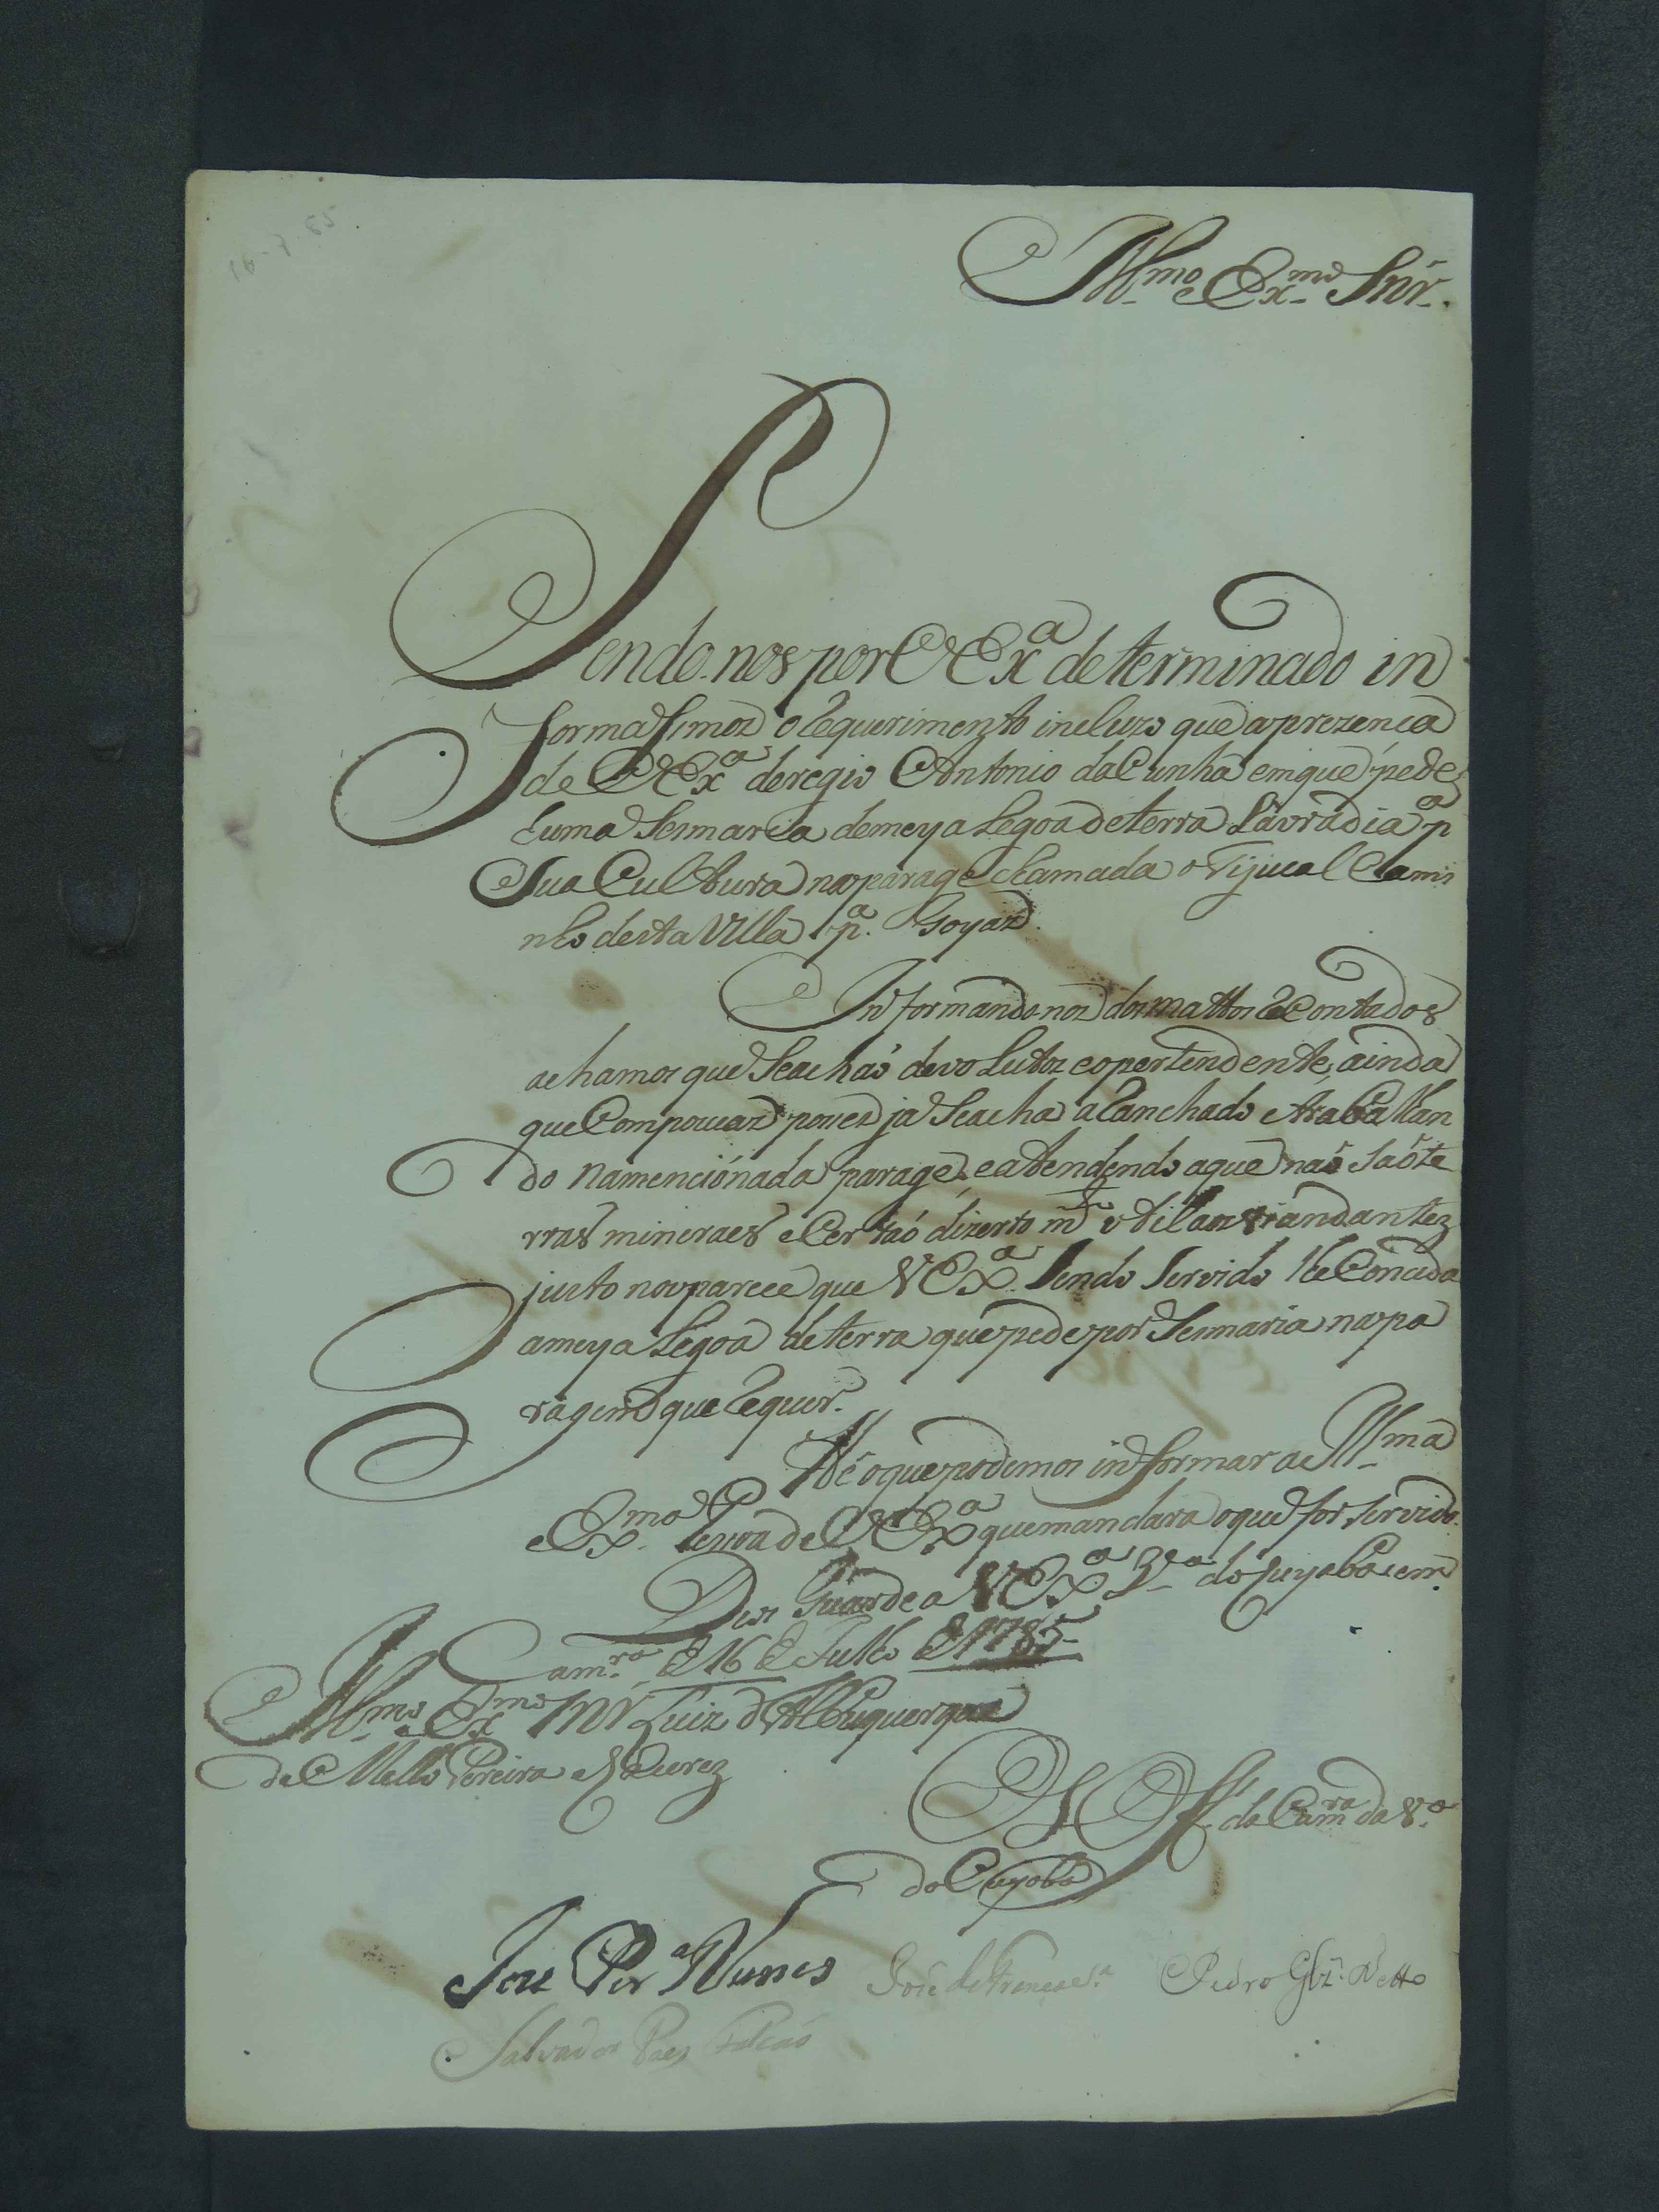 Ill.mo e Ex.mo Snr.
Sendo-nos por V Ex.a determinado in
formassimos o requerimento incluzo que a prezenca
de V Ex.a deregio Antonio da Cunha em que pede
huma Sesmaria de meya Legoa de terra Lavradia p.a
Sua Cultura na parage chamada o Tijucal Cami
nho desta Villa p.a Goyaz.
Informando nos dos mattos e Contados
achamos que Se achaó devolutos e o pertendente, ainda
que Com poucaz posses ja Se acha aRanchado e trabalhan
do na mencionada parage, e atendendo a que naó saó te
rras mineraes e Certaó dizerto m.to util aos viandantez
justo nos parece que V Ex.a Sendo Servido lhe Conceda
a meya Legoa de terra que pede por Sesmaria na pa
ragem que requer.
He o que podemos informar a Ill.ma
e Ex.ma Pessoa de V Ex.a que mandara o que for Servido.
Deos Guarde a V Ex.a V.a do Cuyaba em
Cam.ra de 16 de Julho de 1785
Ill.mo e Ex.mo Snr Luiz d Albuquerque
de Mello Pereira e Cacerez
Os Off.es da Cam.ra da V.a
do Cuyabá
Joze Per.a Nunes Pedro Glz. Netto
Salvador Paes Falcaó